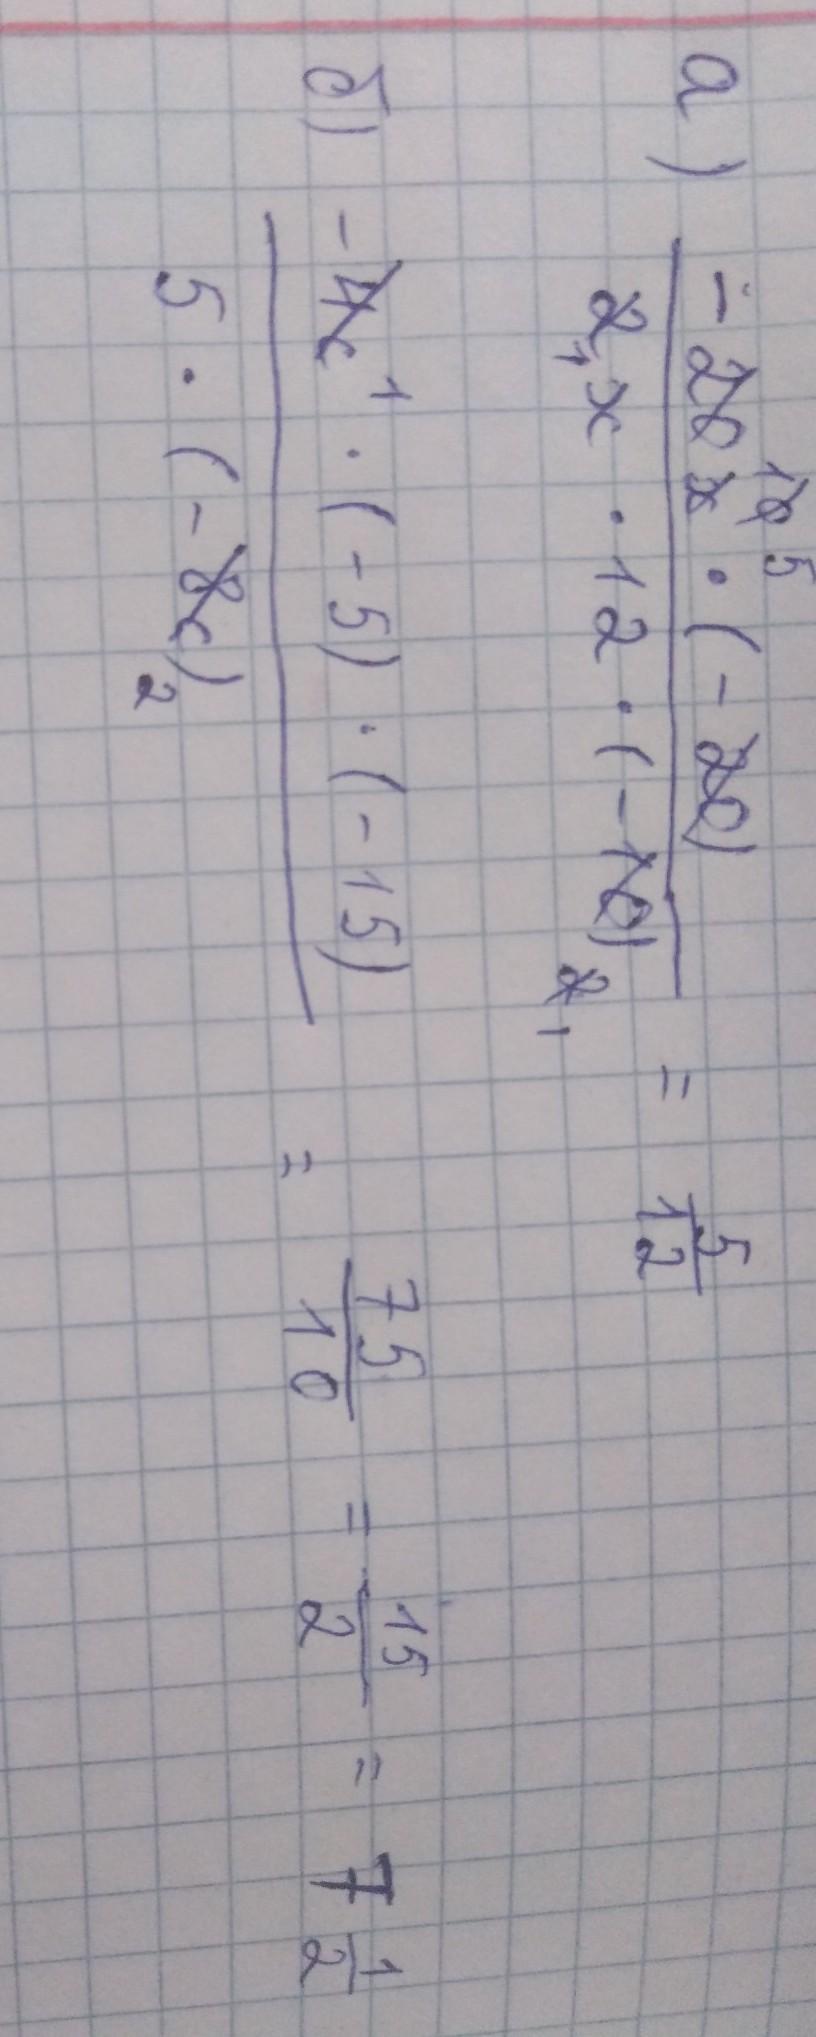 а) -20x 10 5 · (-20)
2 1 x · 12 · (-10) 2 1
= 5/12
б) -4c 1 · (-5) · (-15)
5 · (-8c) 2
= 75/10 = 15/2 = 7 1/2